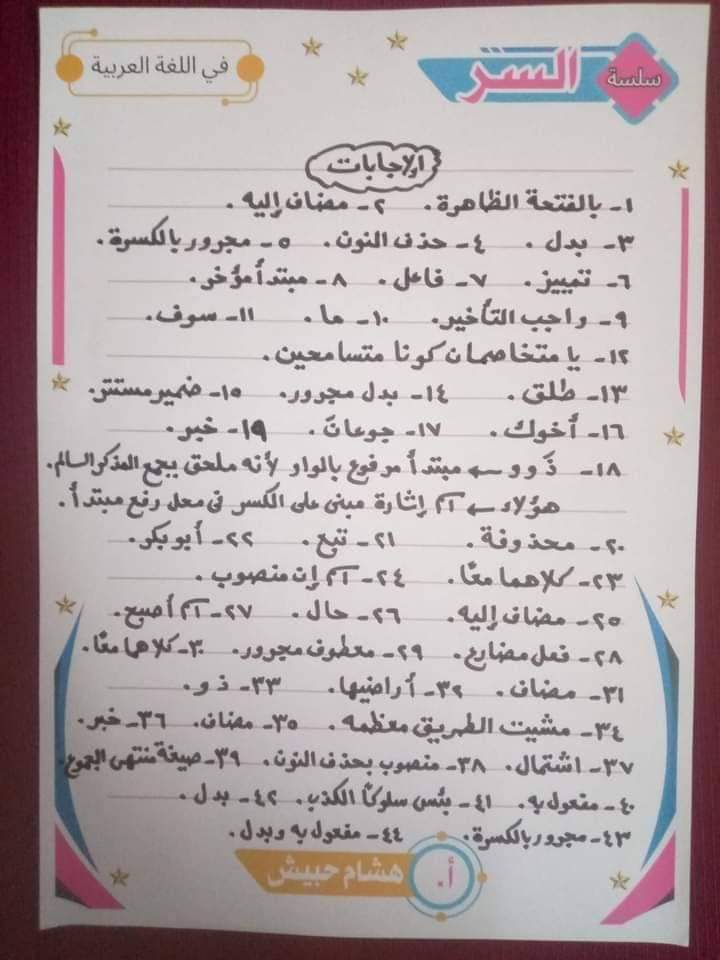 سلسة
السر
في اللغة العربية
الإجابات
١- بالفتحة الظاهرة. ٢- مضاف إليه.
٣- بدل. ٤- حذف النون. ٥- مجرور بالكسرة.
٦- تمييز. ٧- فاعل. ٨- مبتدأ مؤخر.
٩- واجب التأخير. ١٠- ما. ١١- سوف.
١٢- يا متخاصمان كونا متسامحين.
١٣- طلق. ١٤- بدل مجرور. ١٥- ضمير مستتر.
١٦- أخوك. ١٧- جوعانَ. ١٩- خبر.
١٨- ذَوو ← مبتدأ مرفوع بالواو لأنه ملحق بجمع المذكر السالم.
هؤلاء ← اسم إشارة مبنى على الكسر فى محل رفع مبتدأ.
٢٠- محذوفة. ٢١- تبع. ٢٢- أبو بكر.
٢٣- كلاهما معًا. ٢٤- اسم إن منصوب.
٢٥- مضاف إليه. ٢٦- حال. ٢٧- اسم أصبح.
٢٨- فعل مضارع. ٢٩- معطوف مجرور. ٣٠- كلاهما معًا.
٣١- مضاف. ٣٢- أراضيها. ٣٣- ذو.
٣٤- مشيت الطريق معظمه. ٣٥- مضاف. ٣٦- خبر.
٣٧- اشتمال. ٣٨- منصوب بحذف النون. ٣٩- صيغة منتهى الجموع.
٤٠- مفعول به. ٤١- بئس سلوكًا الكذب. ٤٢- بدل.
٤٣- مجرور بالكسرة. ٤٤- مفعول به وبدل.
أ. هشام حبيش